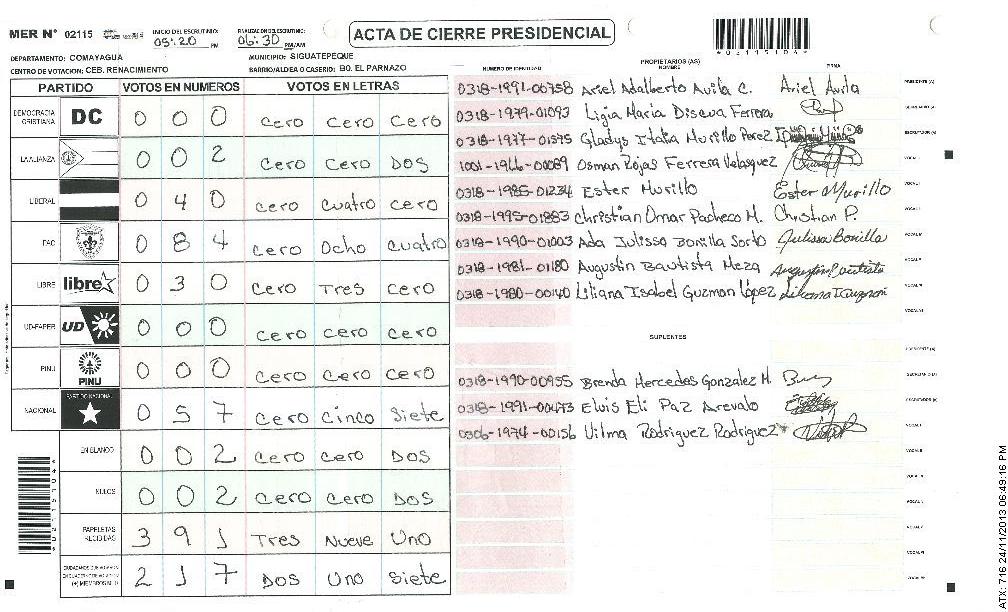 MER N° 02115
INICIO DEL ESCRUTINIO:
05:20 PM
FINALIZACION DEL ESCRUTINIO:
06:30 PM/AM
ACTA DE CIERRE PRESIDENCIAL
DEPARTAMENTO: COMAYAGUA
MUNICIPIO: SIGUATEPEQUE
CENTRO DE VOTACION: CEB. RENACIMIENTO
BARRIO/ALDEA O CASERIO: BO. EL PARNAZO
PARTIDO VOTOS EN NUMEROS VOTOS EN LETRAS
DEMOCRACIA CRISTIANA DC 0 0 0 Cero Cero Cero
LA ALIANZA 0 0 2 Cero Cero Dos
LIBERAL 0 4 0 Cero Cuatro Cero
PAC 0 8 4 Cero Ocho Cuatro
LIBRE libre 0 3 0 Cero Tres Cero
UD-FAPER UD 0 0 0 Cero Cero Cero
PINU PINU 0 0 0 Cero Cero Cero
NACIONAL PARTIDO NACIONAL 0 5 7 Cero Cinco Siete
EN BLANCO 0 0 2 Cero Cero Dos
NULOS 0 0 2 Cero Cero Dos
PAPELETAS RECIBIDAS 3 9 1 Tres Nueve Uno
2 1 7 Dos Uno Siete
PROPIETARIOS (AS)
NUMERO DE IDENTIDAD NOMBRE FIRMA
0318-1991-00758 Ariel Adalberto Avila C. Ariel Avila PRESIDENTE (A)
0318-1979-01093 Ligia Maria Discua Ferrera SECRETARIO (A)
0318-1977-01575 Gladys Italia Murillo Perez ESCRUTADOR (A)
1001-1966-00089 Osman Rojas Ferrera Velasquez VOCAL I
0318-1985-01234 Ester Murillo Ester Murillo
0318-1995-01883 Christian Omar Pacheco M. Christian P.
0318-1990-01003 Ada Julissa Bonilla Sorto Julissa Bonilla
0318-1981-01180 Augustin Bautista Meza Augustin Bautista
0318-1980-00140 Liliana Isabel Guzman López
SUPLENTES
PRESIDENTE (A)
0318-1990-00955 Brenda Mercedes Gonzalez M. SECRETARIO (A)
0318-1991-00473 Elvis Eli Paz Arevalo ESCRUTADOR (A)
0306-1974-00156 Vilma Rodriguez Rodriguez VOCAL I
ATX: 716 24/11/2013 06:49:16 PM